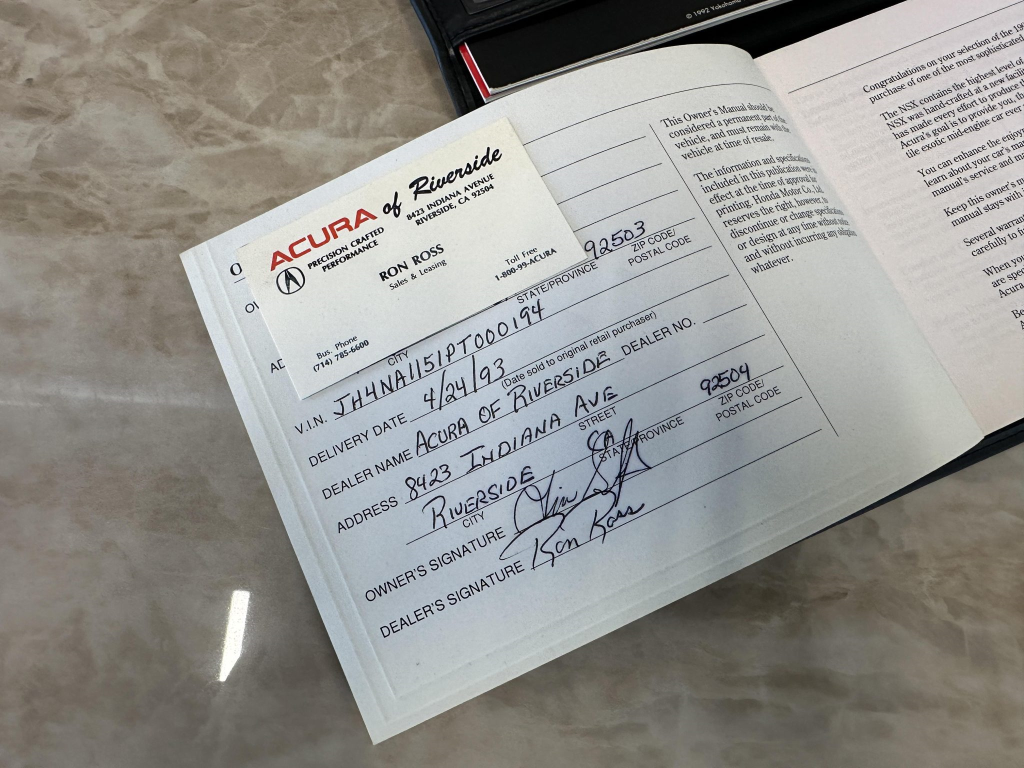 © 1992 Yokohama
ACURA of Riverside
PRECISION CRAFTED
PERFORMANCE
8423 INDIANA AVENUE
RIVERSIDE, CA 92504
RON ROSS
Sales & Leasing
Bus. Phone
(714) 785-6600
Toll Free
1-800-99-ACURA
92503
CITY
STATE/PROVINCE
ZIP CODE/
POSTAL CODE
V.I.N. JH4NA1151PT000194
DELIVERY DATE 4/24/93
(Date sold to original retail purchaser)
DEALER NAME ACURA OF RIVERSIDE DEALER NO.
ADDRESS 8423 INDIANA AVE
STREET
RIVERSIDE CA 92504
CITY STATE/PROVINCE ZIP CODE/
POSTAL CODE
OWNER'S SIGNATURE
DEALER'S SIGNATURE Ron Ross
This Owner's Manual should be
considered a permanent part of the
vehicle, and must remain with the
vehicle at time of resale.
The information and specifications
included in this publication were in
effect at the time of approval for
printing. Honda Motor Co., Ltd.
reserves the right, however, to
discontinue or change specifications
or design at any time without notice
and without incurring any obligation
whatever.
Congratulations on your selection of the
purchase of one of the most sophisticated
The NSX contains the highest level of
NSX was hand-crafted at a new
has made every effort to produce
Acura's goal is to provide you,
tile exotic mid-engine car ever
You can enhance the
learn about your car's
manual's service and
Keep this owner's
manual stays with
Several
carefully to
When you
are
Acura